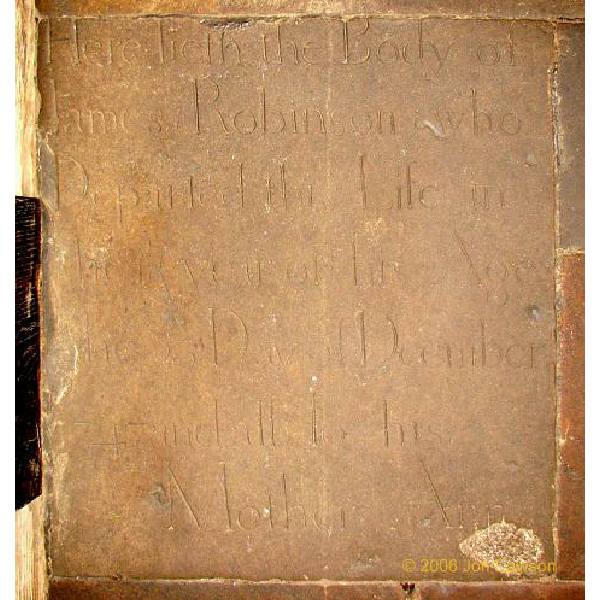 Here lieth the Body of
James Robinson who
Departed this Life in
the year of his Age
the Day of December
and all so his
Mother Ann
© 2006 Jon